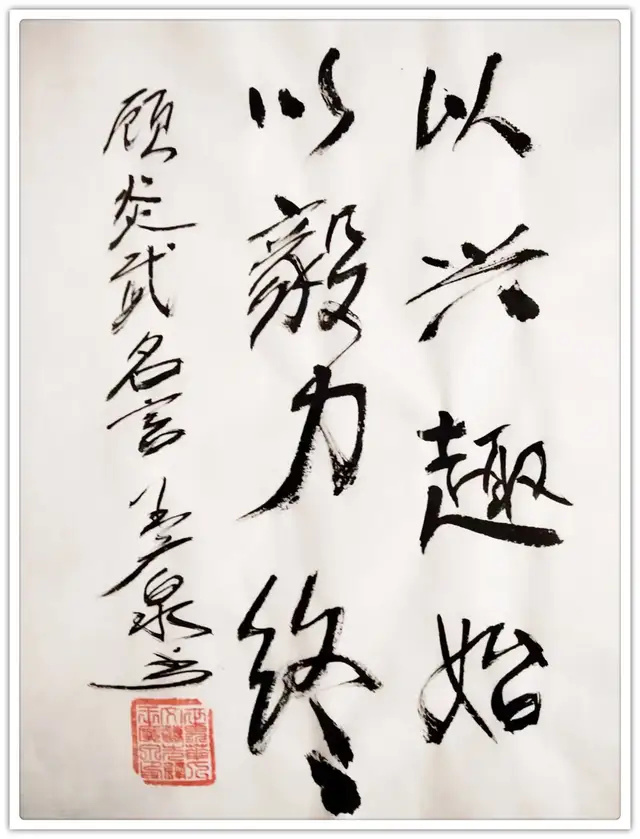 以兴趣始
以毅力终
顾炎武名言 泉书